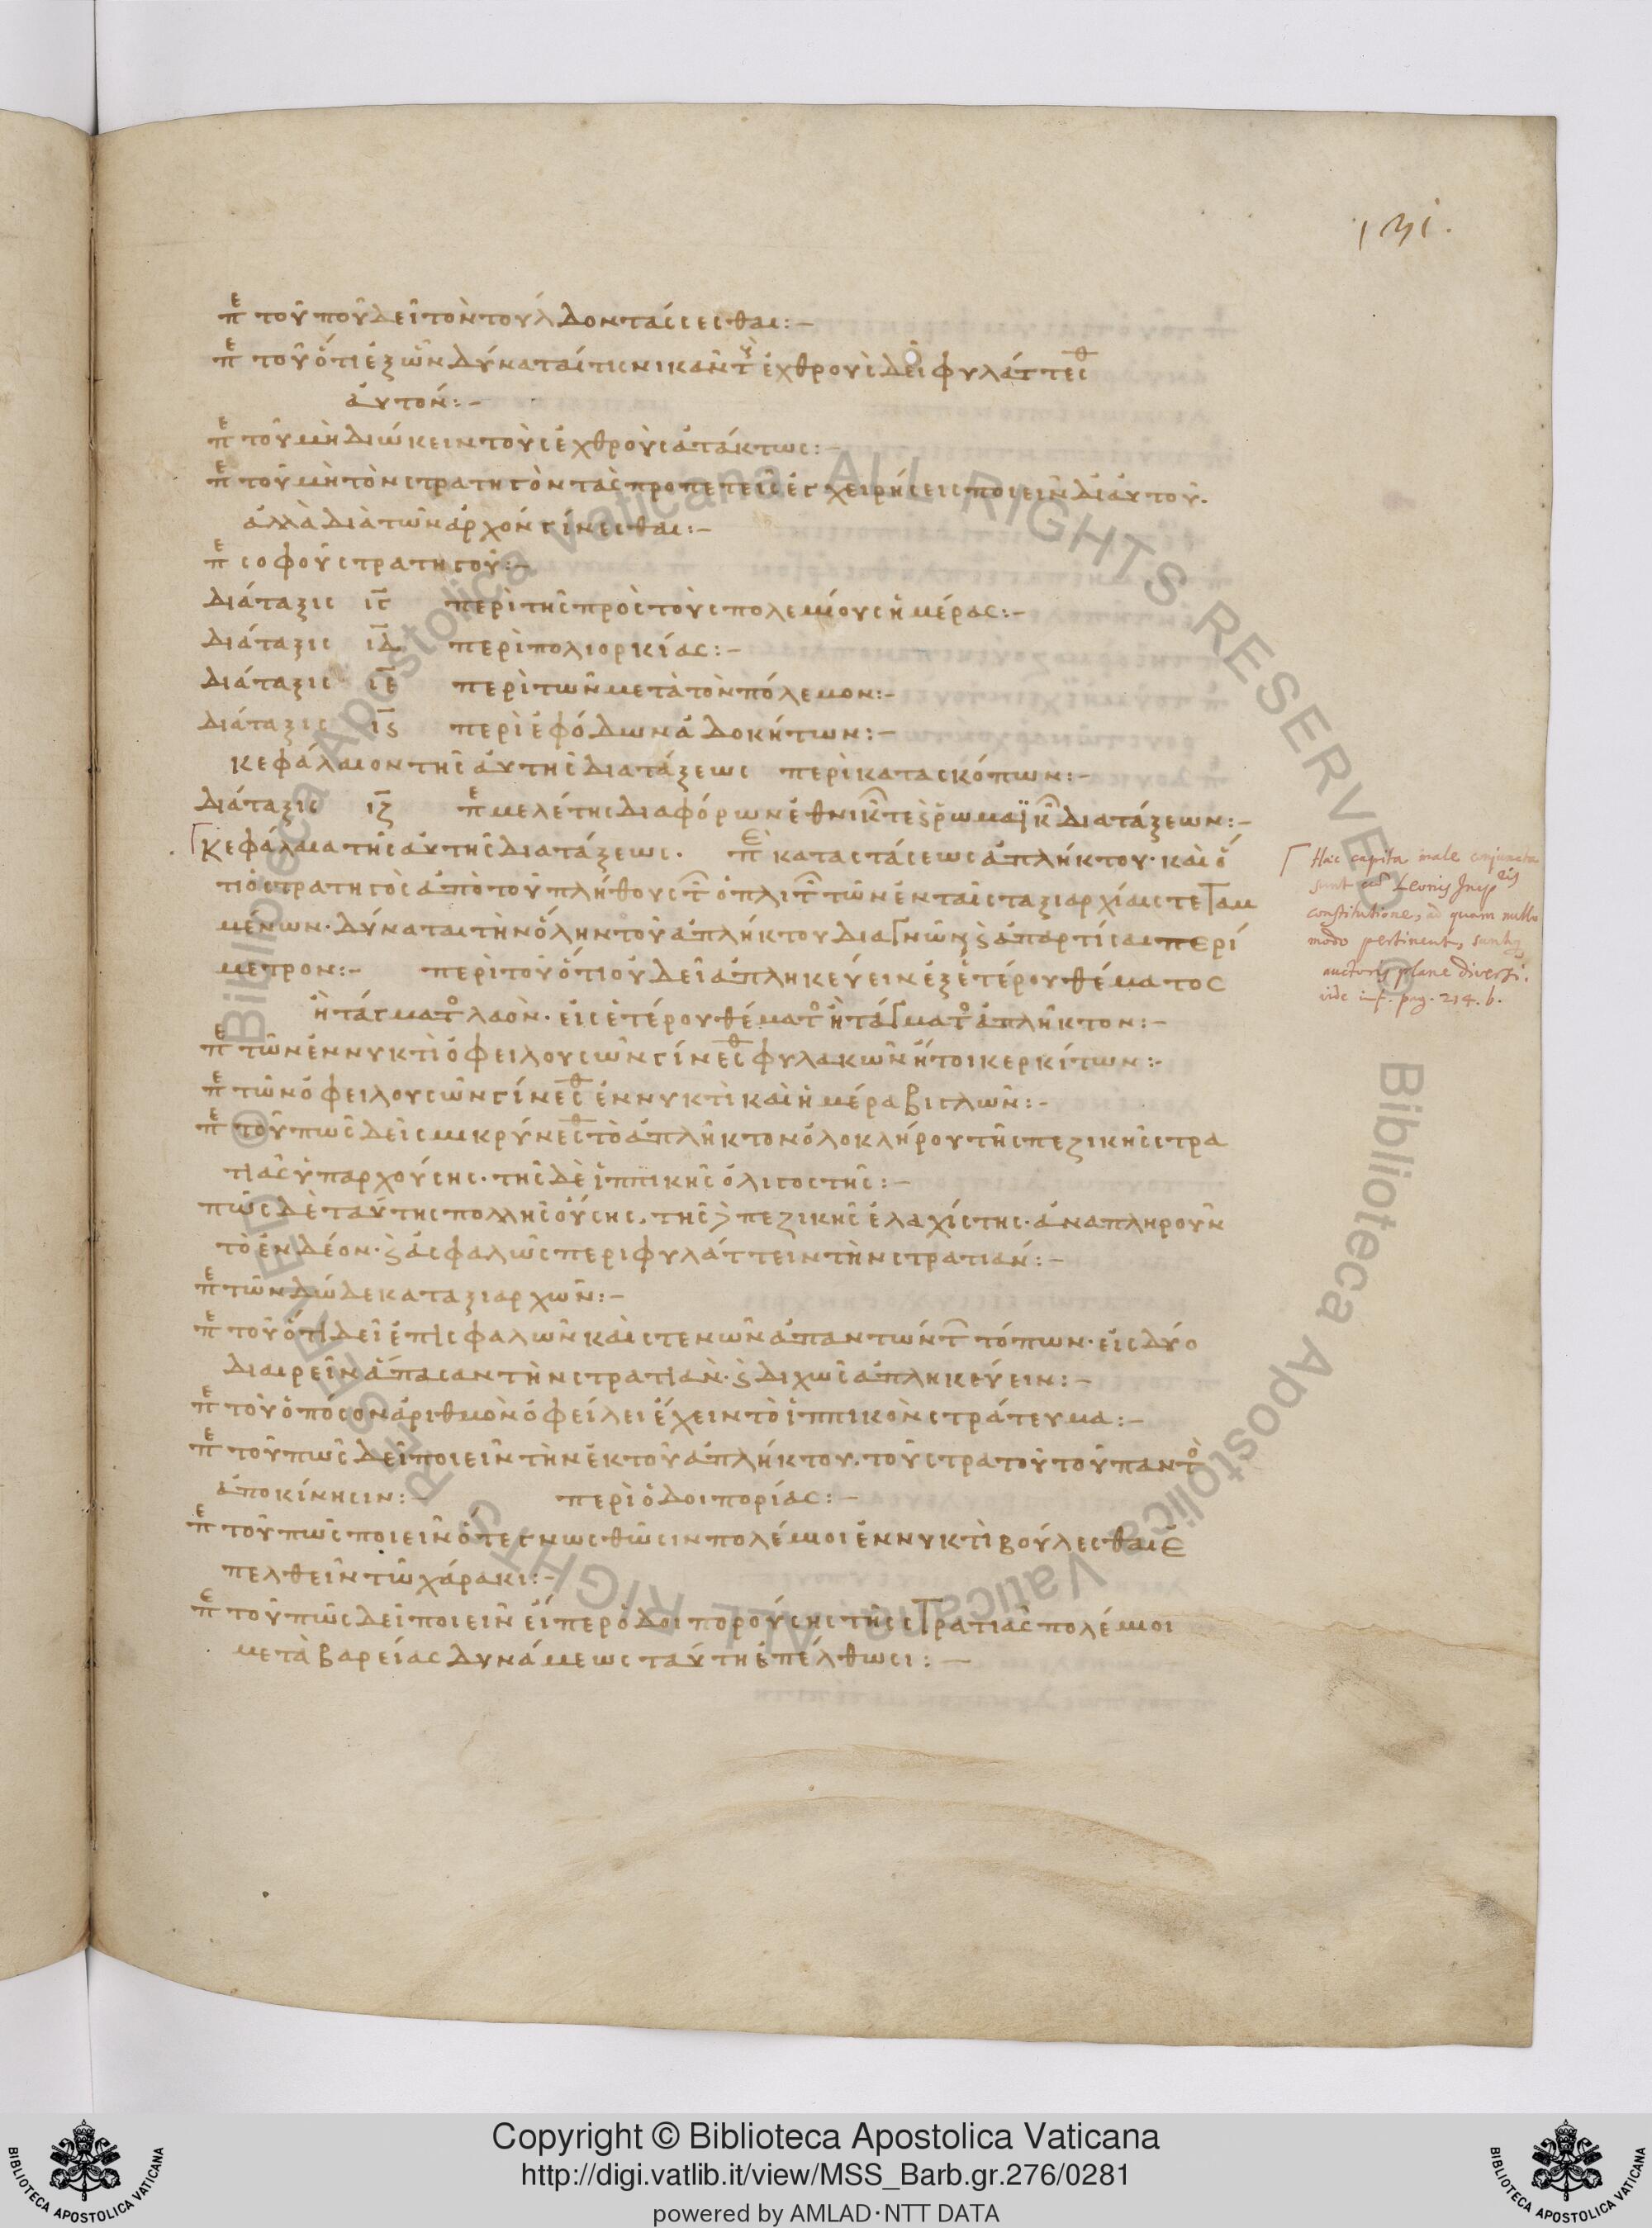 131.
πε τοῦ ποῦ δεῖ τὸν τοῦλδον τάσσεσθαι :–
πε τοῦ ὅτι ἐξ ὧν δύναταί τις νικᾶν τοὺς ἐχθροὺς δεῖ φυλάττεσθ
αυτόν :–
πε τοῦ μὴ διώκειν τοὺς ἐχθροὺς ἀτάκτως :–
πε τοῦ μὴ τὸν στρατηγὸν τὰς προπετεῖς ἐγχειρήσεις ποιεῖν δι' αυτοῦ.
ἀλλὰ διὰ τῶν ἀρχόν γίνεσθαι :–
πε σοφοῦ στρατηγοῦ :–
Διάταξις ιγ περὶ τῆς πρὸς τοὺς πολεμίους ἡμέρας :–
Διάταξις ιδ περὶ πολιορκίας :–
Διάταξις ιε περὶ τῶν μετὰ τὸν πόλεμον :–
Διάταξις ις περὶ ἐφόδων ἀδοκήτων :–
κεφάλαιον τῆς αὐτῆς διατάξεως περὶ κατασκόπων :–
Διάταξις ιζ πε μελέτης διαφόρων ἐθνικ τε ϛ ῥωμαϊκ διατάξεων :–
Κεφάλαια τῆς αὐτῆς διατάξεως. πε καταστάσεως ἀπλήκτου· καὶ ὅ
τι ὁ στρατηγὸς ἀπὸ τοῦ πλήθους τ ὁπλιτ τῶν ἐν ταῖς ταξιαρχίαις τεταγ
μένων· δύναται τὴν ὅλην τοῦ ἀπλήκτου διαγνῶναι ϛ ἀπαρτίσαι περί
μετρον :– περὶ τοῦ ὅτι οὐ δεῖ ἀπληκεύειν ἐξ ἑτέρου θέματος
ἢ τάγματο λαὸν· εἰς ἑτέρου θέματο ἢ τάγματο ἄπληκτον :–
πε τῶν ἐν νυκτὶ ὀφειλουσῶν γίνεσθ φυλακῶν ἤτοι κερκίτων :–
πε τῶν ὀφειλουσῶν γίνεσθ ἐν νυκτὶ καὶ ἡμέρα βιγλῶν :–
πε τοῦ πῶς δεῖ σμικρύνεσθ τὸ ἄπληκτον ὁλοκλήρου τῆς πεζικῆς στρα
τιᾶς ὑπαρχούσης· τῆς δὲ ἱππικῆς ὀλιγοστῆς :–
πῶς δὲ ταύτης πολλῆς οὔσης, τῆς δὲ πεζικῆς ἐλαχίστης· ἀναπληροῦν
τὸ ἐνδέον· ϛ ἀσφαλῶς περιφυλάττειν τὴν στρατιάν :–
πε τῶν δώδεκα ταξιαρχῶν :–
πε τοῦ ὅτι δεῖ ἐπισφαλῶν καὶ στενωνᾶ παντώντ τόπων· εἰς δύο
διαιρεῖν ἅπασαν τὴν στρατιὰν· ϛ διχῶς ἀπληκεύειν :–
πε τοῦ ὁπόσον ἀριθμὸν ὀφείλει ἔχειν τὸ ἱππικὸν στράτευμα :–
πε τοῦ πῶς δεῖ ποιεῖν τὴν ἐκ τοῦ ἀπλήκτου. τοῦ στρατοῦ τοῦ παντο
ἀποκίνησιν :– περὶ ὁδοιπορίας :–
πε τοῦ πῶς ποιεῖν ὅτε γνωσθῶσιν πολέμιοι ἐν νυκτὶ βούλεσθαι ἐ
πελθεῖν τῶ χάρακι :–
πε τοῦ πῶς δεῖ ποιεῖν εἴπερ ὁδοιπορούσης τῆς στρατιᾶς πολέμιοι
μετὰ βαρείας δυνάμεως ταύτη ἐπέλθωσι :–
Haec capita male conjuncta
sunt cum Leonis Imp.ris
constitutione, ad quam nullo
modo pertinent, suntq
auctoris plane diversi.
vide inf. pag. 214. b.
© Biblioteca Apostolica Vaticana ALL RIGHTS RESERVED
Copyright © Biblioteca Apostolica Vaticana
http://digi.vatlib.it/view/MSS_Barb.gr.276/0281
powered by AMLAD·NTT DATA
BIBLIOTECA APOSTOLICA VATICANA
BIBLIOTECA APOSTOLICA VATICANA